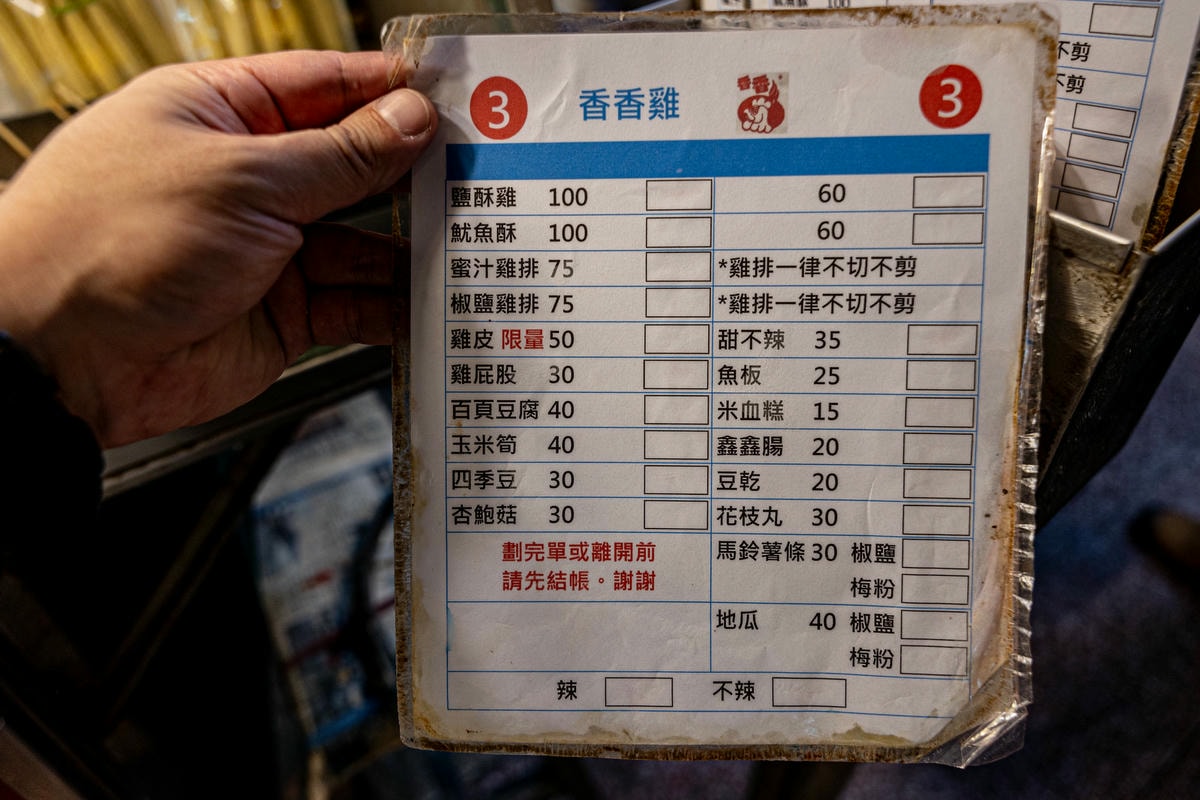 100
不剪
不剪
3 香香雞 香香 3
鹽酥雞 100 60
魷魚酥 100 60
蜜汁雞排 75 *雞排一律不切不剪
椒鹽雞排 75 *雞排一律不切不剪
雞皮 限量 50 甜不辣 35
雞屁股 30 魚板 25
百頁豆腐 40 米血糕 15
玉米筍 40 鑫鑫腸 20
四季豆 30 豆乾 20
杏鮑菇 30 花枝丸 30
劃完單或離開前
請先結帳。謝謝
馬鈴薯條 30 椒鹽
梅粉
地瓜 40 椒鹽
梅粉
辣 不辣